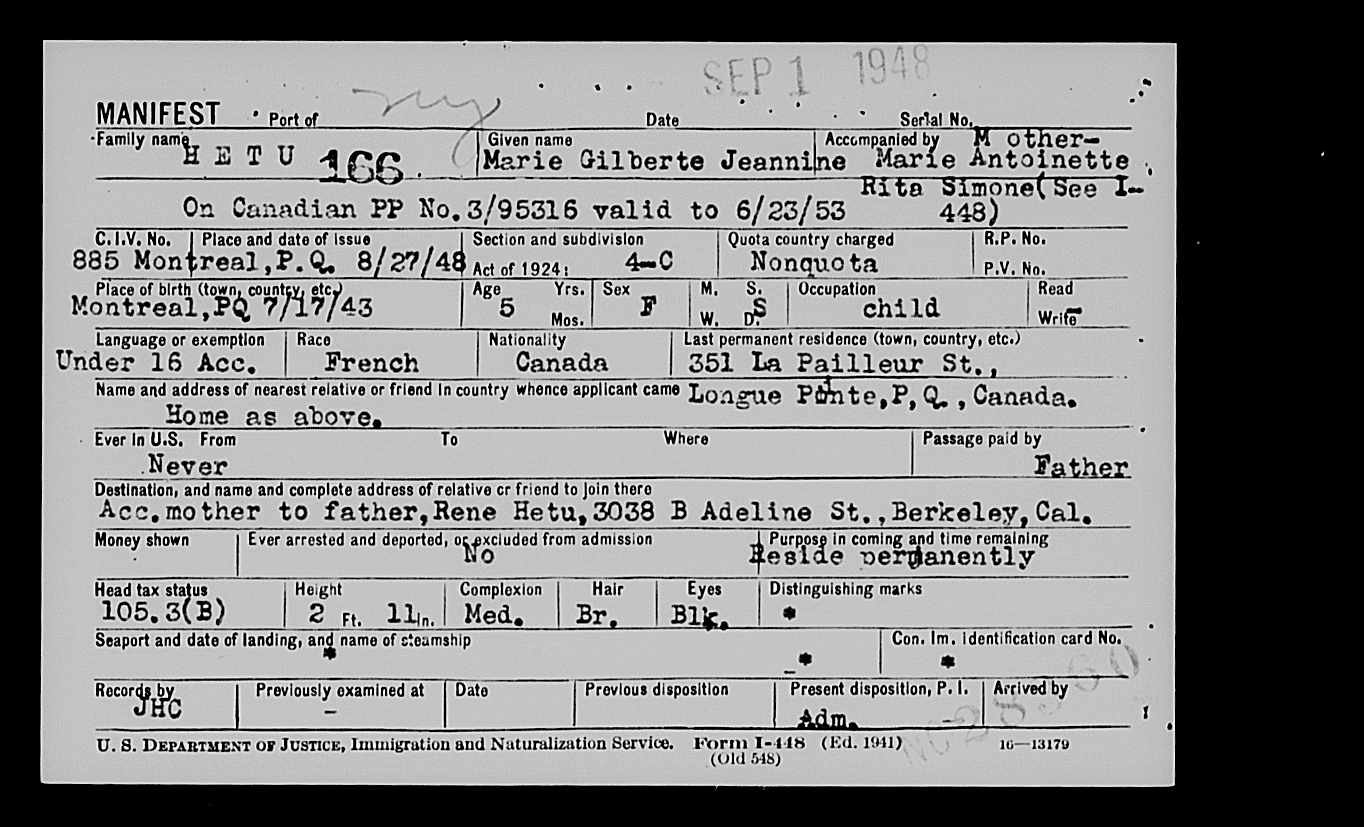 SEP 1 1948
MANIFEST Port of Date Serial No.
Family name Given name Accompanied by Mother-
HETU 166 Marie Gilberte Jeannine Marie Antoinette
Rita Simone(See I-
On Canadian PP No.3/95316 valid to 6/23/53 448)
C.I.V. No. Place and date of Issue Section and subdivision Quota country charged R.P. No.
885 Montreal,P.Q. 8/27/48 Act of 1924: 4-C Nonquota P.V. No.
Place of birth (town, country, etc.) Age Yrs. Sex M. S. Occupation Read
Montreal,PQ 7/17/43 5 F S child
Mos. W. D. Write
Language or exemption Race Nationality Last permanent residence (town, country, etc.)
Under 16 Acc. French Canada 351 La Pailleur St.,
Name and address of nearest relative or friend in country whence applicant came Longue Pointe,P,Q.,Canada.
Home as above.
Ever in U.S. From To Where Passage paid by
Never Father
Destination, and name and complete address of relative or friend to join there
Acc.mother to father,Rene Hetu,3038 B Adeline St.,Berkeley,Cal.
Money shown Ever arrested and deported, or excluded from admission Purpose in coming and time remaining
No Reside permanently
Head tax status Height Complexion Hair Eyes Distinguishing marks
105.3(B) 2 Ft. 11 In. Med. Br. Blk. *
Seaport and date of landing, and name of steamship Con. Im. Identification card No.
* -* *
Records by Previously examined at Date Previous disposition Present disposition, P. I. Arrived by
JHC - Adm. -
U. S. DEPARTMENT OF JUSTICE, Immigration and Naturalization Service. Form I-448 (Ed. 1941) 16—13179
(Old 548)